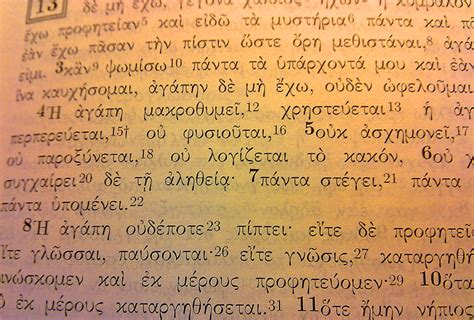 13 δὲ μὴ ἔχω, γέγονα χαλκὸς ἠχῶν ἢ κύμβαλον
ἔχω προφητείαν5 καὶ εἰδῶ τὰ μυστήρια6 πάντα καὶ π
ἐὰν ἔχω πᾶσαν τὴν πίστιν ὥστε ὄρη μεθιστάναι,8 ἀγά
εἰμι. 3κἂν9 ψωμίσω10 πάντα τὰ ὑπάρχοντά μου καὶ ἐὰν
ἵνα καυχήσομαι, ἀγάπην δὲ μὴ ἔχω, οὐδὲν ὠφελοῦμαι
4Ἡ ἀγάπη μακροθυμεῖ,12 χρηστεύεται13 ἡ ἀγ
περπερεύεται,15† οὐ φυσιοῦται,16 5οὐκ ἀσχημονεῖ,17
οὐ παροξύνεται,18 οὐ λογίζεται τὸ κακόν, 6οὐ χ
συγχαίρει20 δὲ τῇ ἀληθείᾳ· 7πάντα στέγει,21 πάντα
πάντα ὑπομένει.22
8Ἡ ἀγάπη οὐδέποτε23 πίπτει· εἴτε δὲ προφητεῖ
εἴτε γλῶσσαι, παύσονται·26 εἴτε γνῶσις,27 καταργηθή
ινώσκομεν καὶ ἐκ μέρους προφητεύομεν·29 10ὅτα
ὸ ἐκ μέρους καταργηθήσεται.31 11ὅτε ἤμην νήπιος